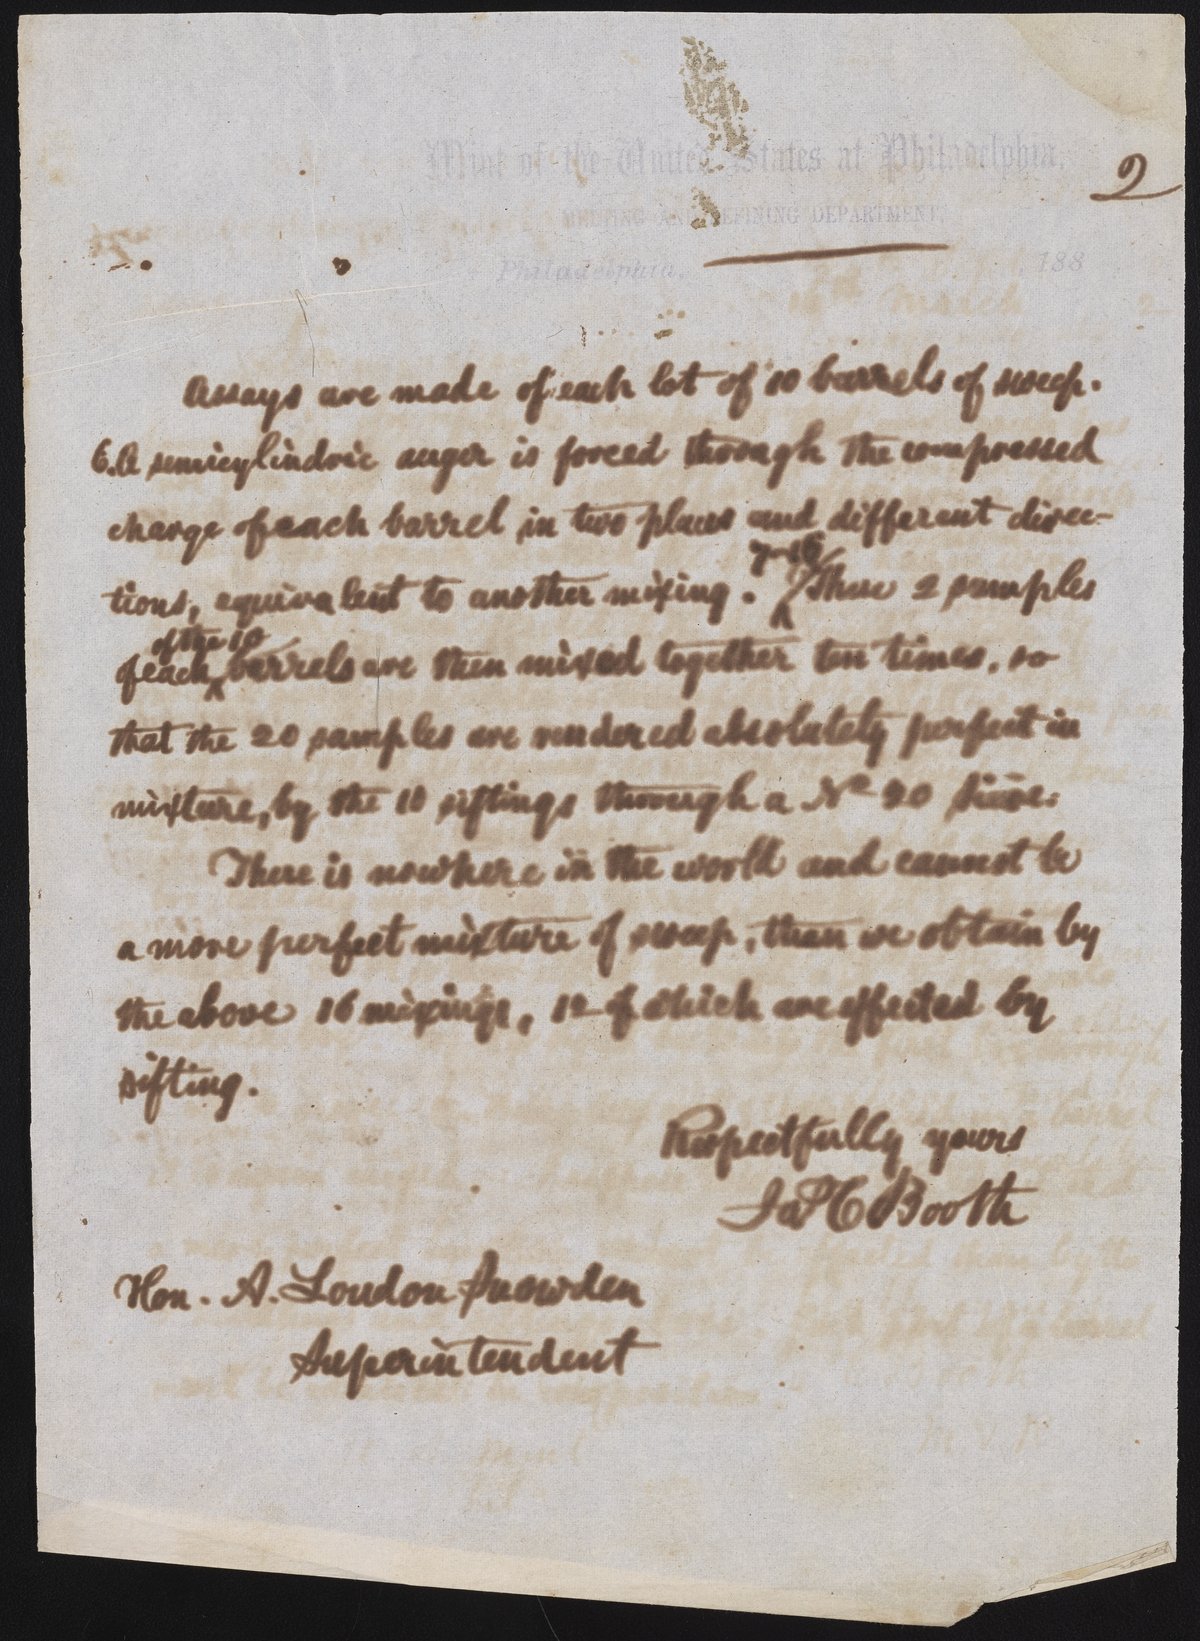 Mint of the United States at Philadelphia.
2
MELTING AND REFINING DEPARTMENT.
Philadelphia, 188
Assays are made of each lot of 10 barrels of sweep.
6. A semicylindric auger is forced through the compressed
charge of each barrel in two places and different direc-
tions, equivalent to another mixing. 7-16/ These 2 samples
of each of the 10 barrels are then mixed together ten times, so
that the 20 samples are rendered absolutely perfect in
mixture, by the 10 siftings through a No 20 sieve.
There is nowhere in the world and cannot be
a more perfect mixture of sweep, than we obtain by
the above 16 mixings, 12 of which are effected by
sifting.
Respectfully yours
Jas C Booth
Hon. A. Loudon Snowden
Superintendent